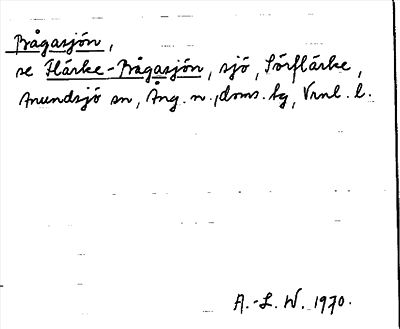 Brågasjön,
se Flärke-Brågasjön, sjö, Sörflärke,
Anundsjö sn, Ång. n., doms. tg, Vrnl. l.
A.-L. W. 1970.